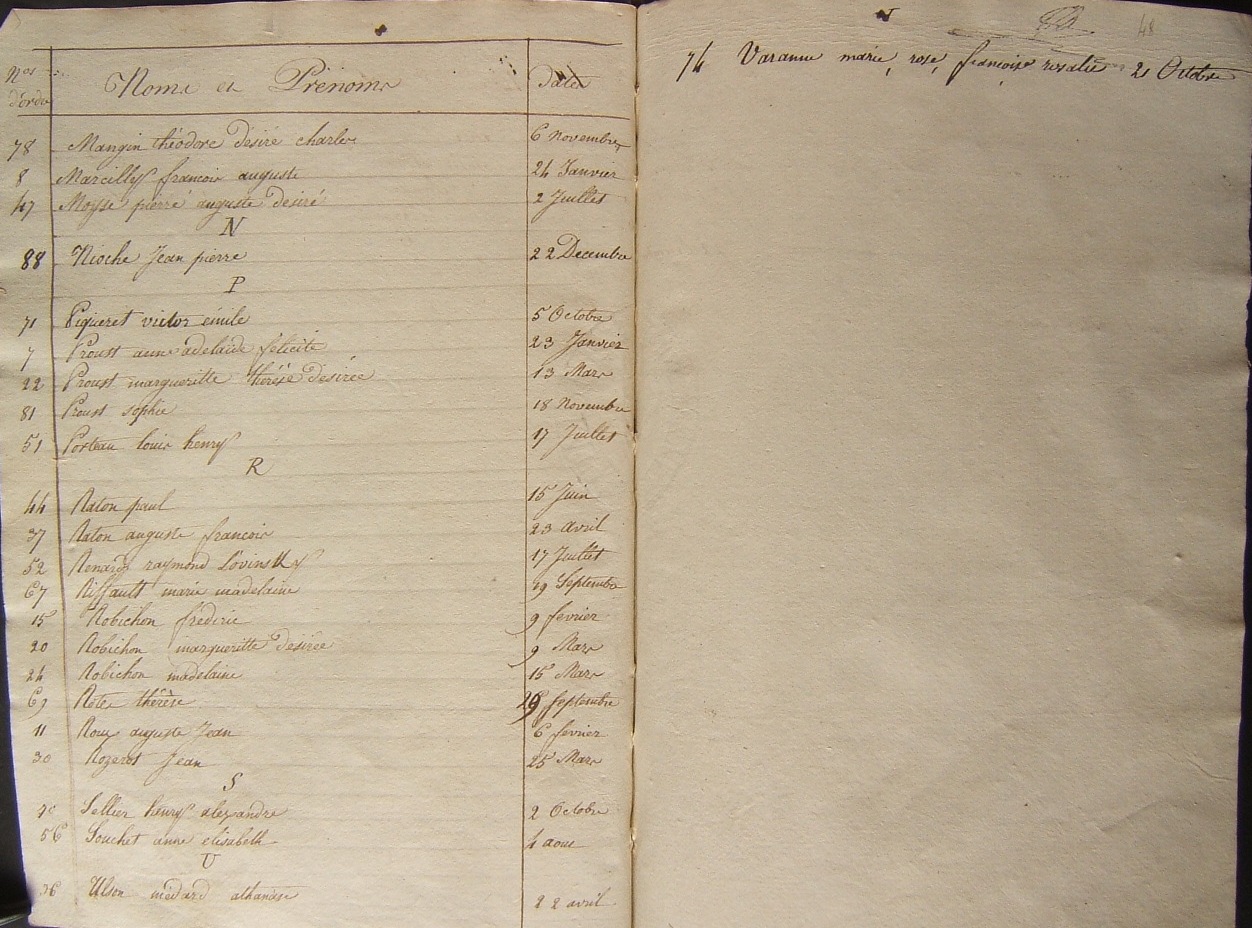 Nos d'ordre Noms et Prénoms Dates
78 Mangin théodore désiré charles 6 Novembre
8 Marcilly francois auguste 24 Janvier
47 Moyse pierre auguste désiré 2 Juillet
N
88 Nioche Jean pierre 22 Decembre
P
71 Piqueret victor émile 5 Octobre
7 Proust anne adelaide félicité 23 Janvier
22 Proust margueritte thérèse desirée 13 Mars
81 Proust sophie 18 Novembre
51 Porteau louis henry 17 Juillet
R
44 Raton paul 15 Juin
37 Raton auguste francois 23 avril
52 Renard raymond 17 Juillet
67 Riffault marie madelaine 19 Septembre
15 Robichon fréderic 9 fevrier
20 Robichon margueritte desirée 9 Mars
24 Robichon madelaine 15 Mars
69 thérèse Septembre
11 Roux auguste Jean 6 fevrier
30 Rozerot Jean 25 Mars
S
Sellier henry alexandre 2 Octobre
56 Souchet anne elisabeth 4 aout
U
36 Ulson médard athanase 22 avril
74 Varanne marie, rose, francoise rosalie 21 Octobre
48